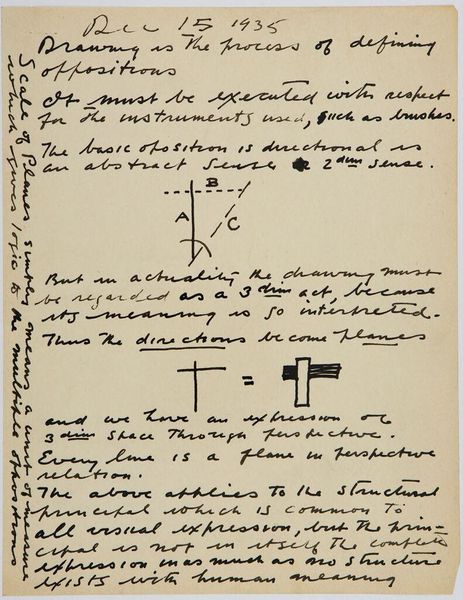 Dec 15 1935
Drawing is the process of defining
oppositions
It must be executed with respect
for the instruments used, such as brushes.
The basic oposition is directional is
an abstract sense 2 dim sense.
B
A
C
But in actuality the drawing must
be regarded as a 3 dim act, because
its meaning is so interpreted.
Thus the directions become planes
=
and we have an expression of
3 dim space through perspective.
Every line is a plane in perspective
relation.
The above applies to the structural
principal which is common to
all visual expression, but the prin-
cipal is not in itself the complete
expression in as much as no structure
exists with human meaning
Scale of Planes simply means a unit of measure
which gives logic to the multiple oppositions